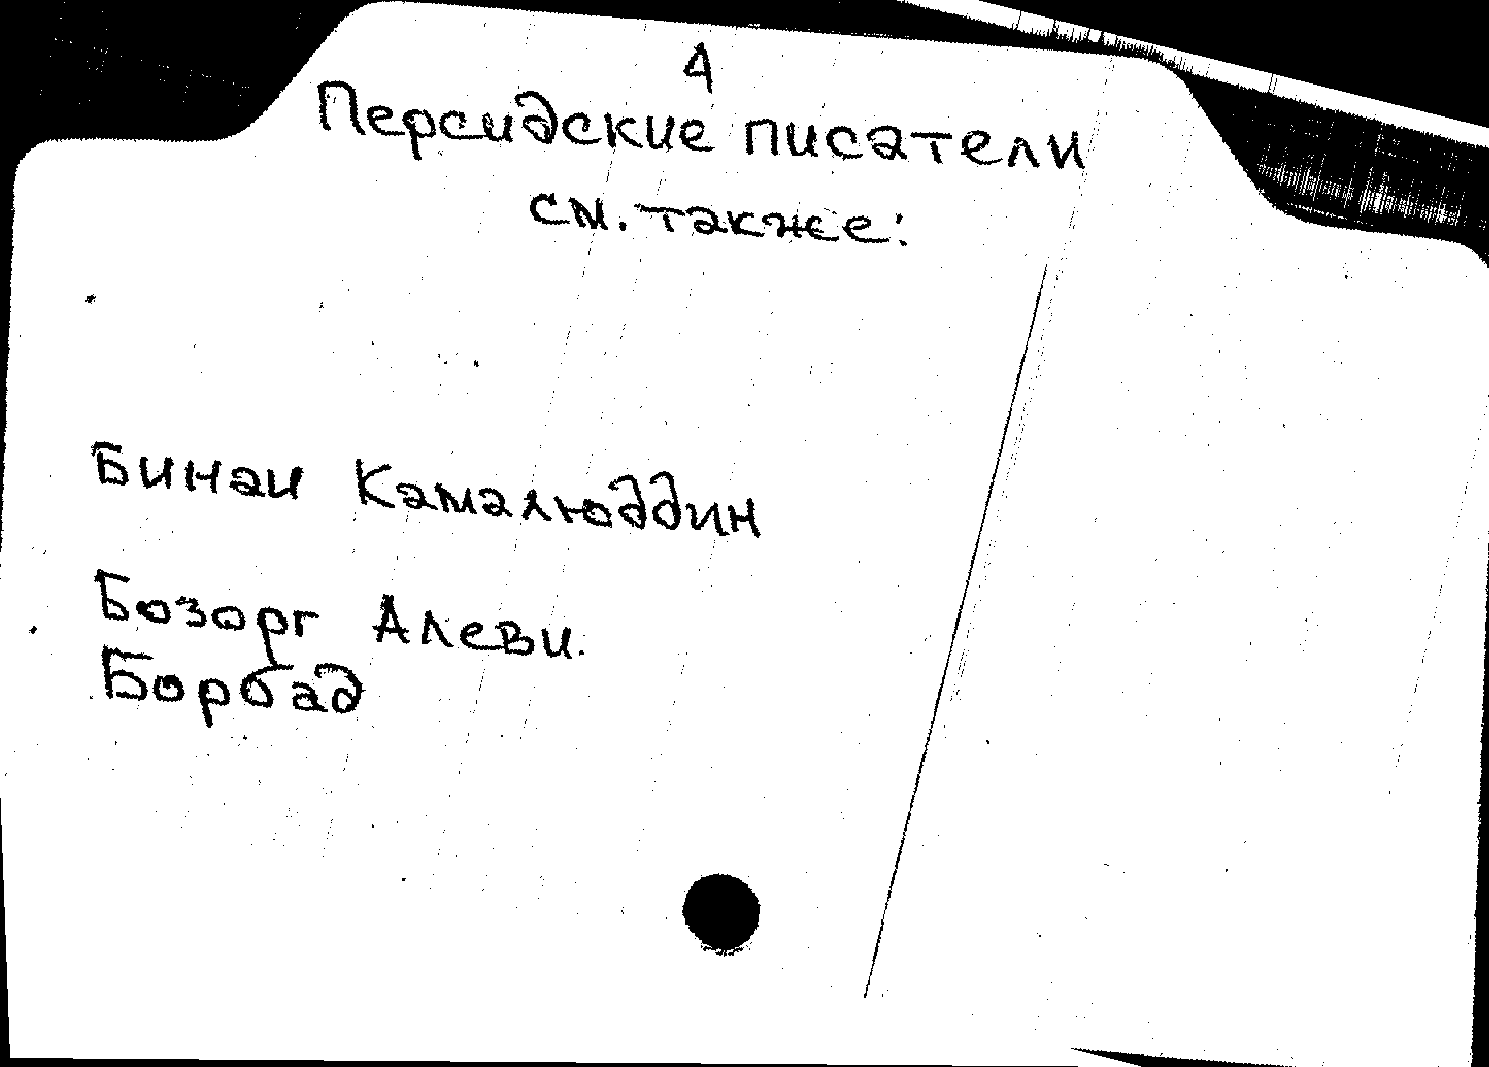 4
Персидские писатели
см. также:
Бинаи Камалюддин
Бозорг Алеви.
Борбад